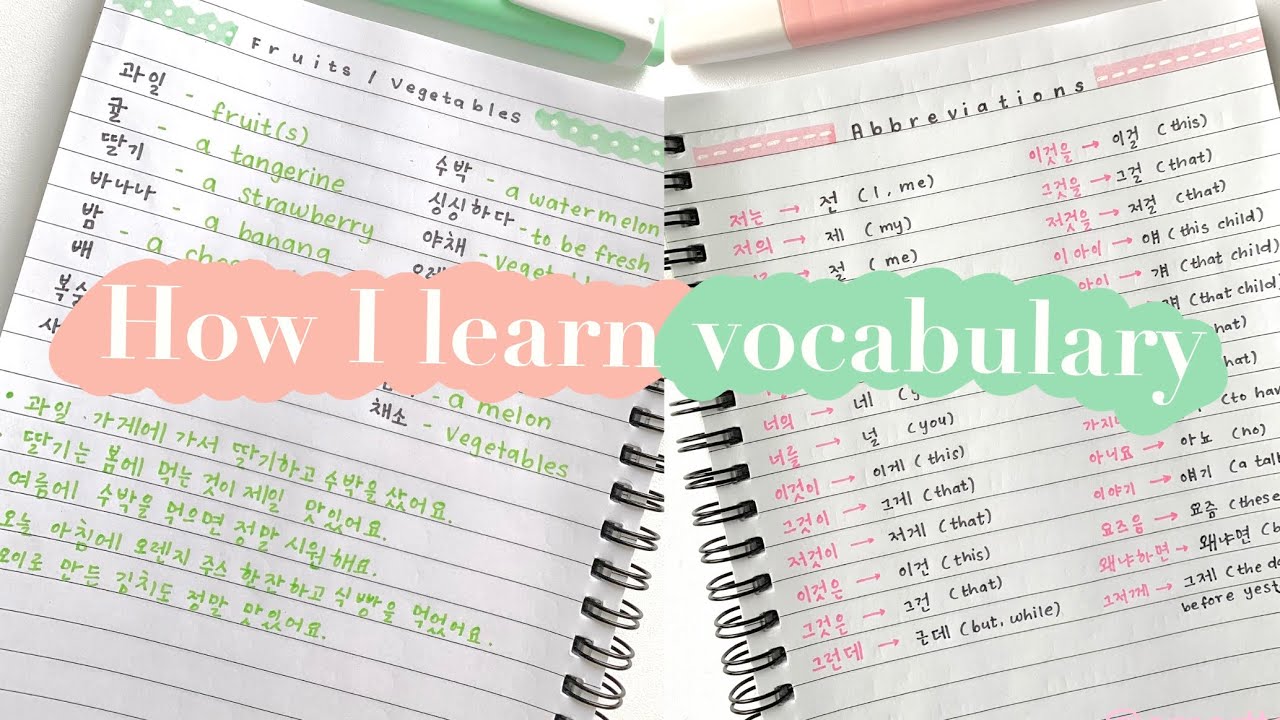 Fruits / Vegetables
과일 - fruit(s)
귤 - a tangerine
딸기 - a strawberry
바나나 - a banana
밤 - a
배
수박 - a watermelon
싱싱하다 - to be fresh
야채 -
- a melon
채소 - vegetables
• 과일 가게에 가서 딸기하고 수박을 샀어요.
• 딸기는 봄에 먹는 것이 제일 맛있어요.
여름에 수박을 먹으면 정말 시원해요.
오늘 아침에 오렌지 주스 한 잔하고 식빵을 먹었어요.
오이로 만든 김치도 정말 맛있어요.
How I learn vocabulary
Abbreviations
저는 → 전 (I, me)
저의 → 제 (my)
절 (me)
너의 → 네
너를 → 널 (you)
이것이 → 이게 (this)
그것이 → 그게 (that)
저것이 → 저게 (that)
이것은 → 이건 (this)
그것은 → 그건 (that)
그런데 → 근데 (but, while)
이것을 → 이걸 (this)
그것을 → 그걸 (that)
저것을 → 저걸 (that)
이 아이 → 얘 (this child)
아이 → 걔 (that child)
쟤 (that child)
(to
아니요 → 아뇨 (no)
이야기 → 얘기 (a
요즈음 → 요즘
왜냐하면 → 왜냐면
그저께 → 그제 (the
before